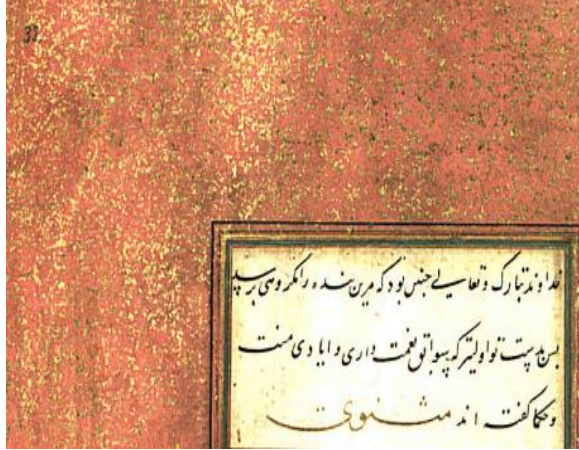 33
خداوند تبارک و تعالی جنس بود که مرین بنده را مکروهی برسید
بس بدست تو اولیتر که بسوابق نعمت داری و ایادی منت
و حکما گفته اند مثنوی